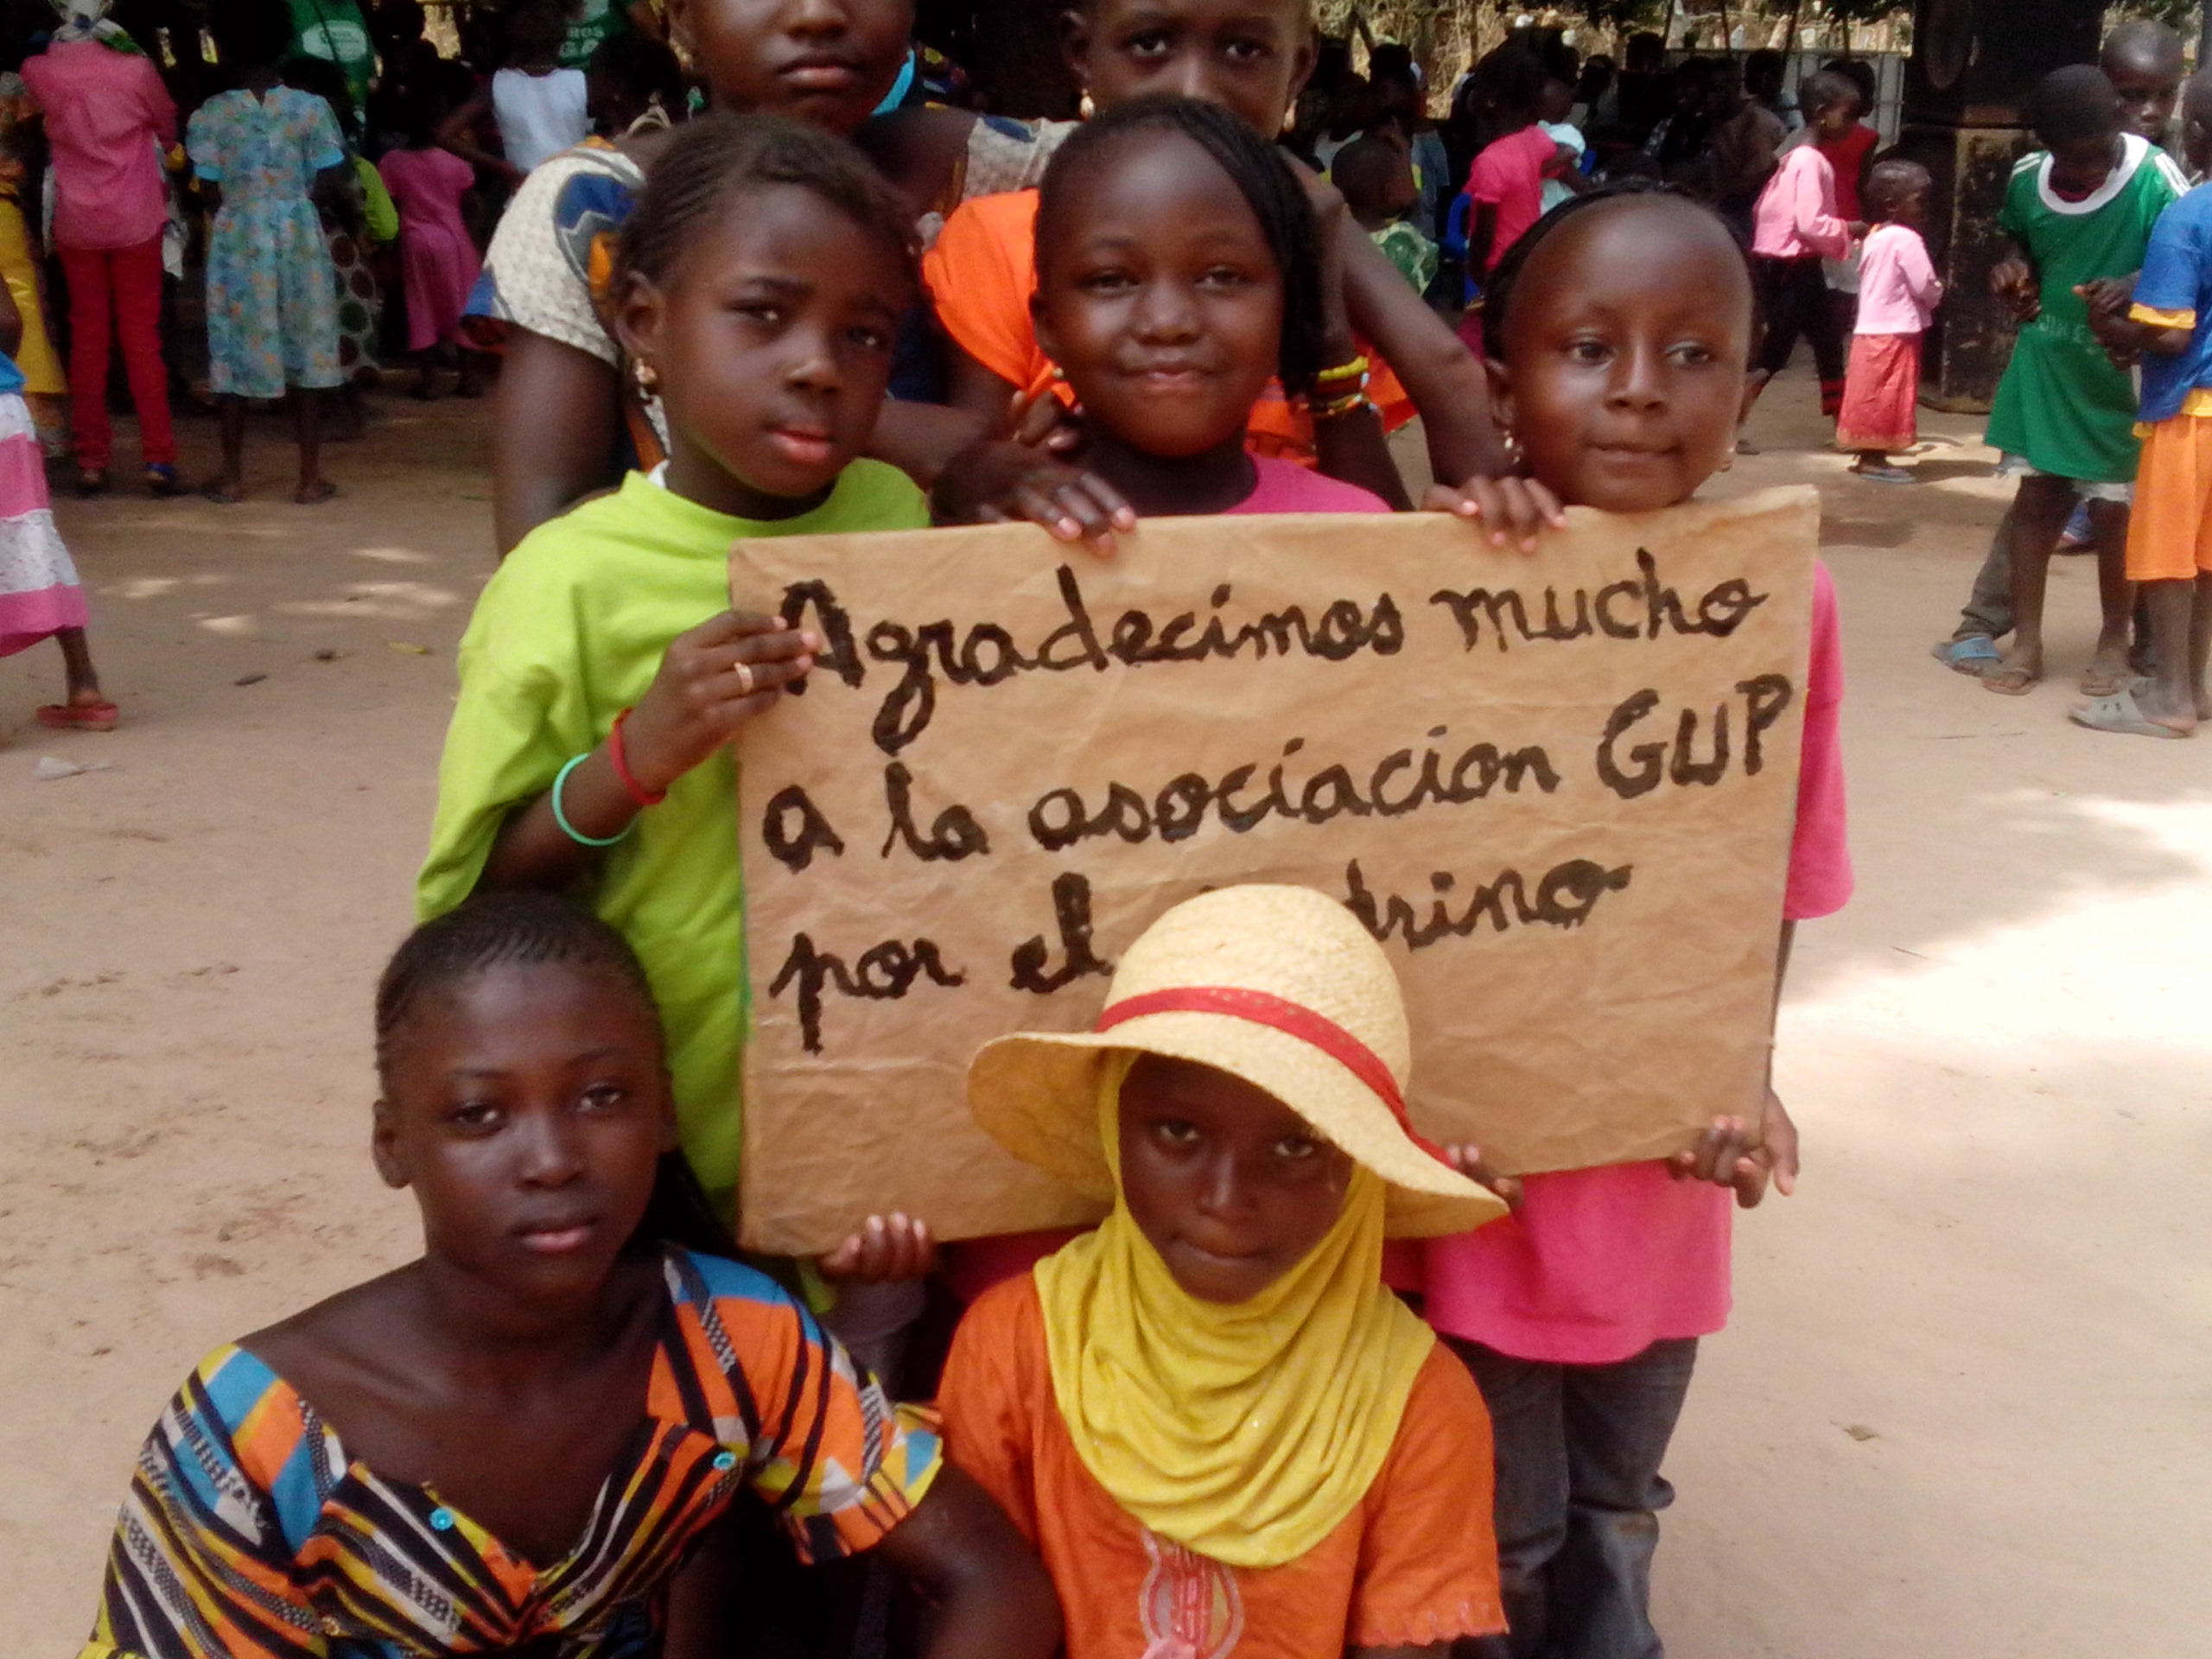 Agradecimos mucho
a la asociacion GUP
por el